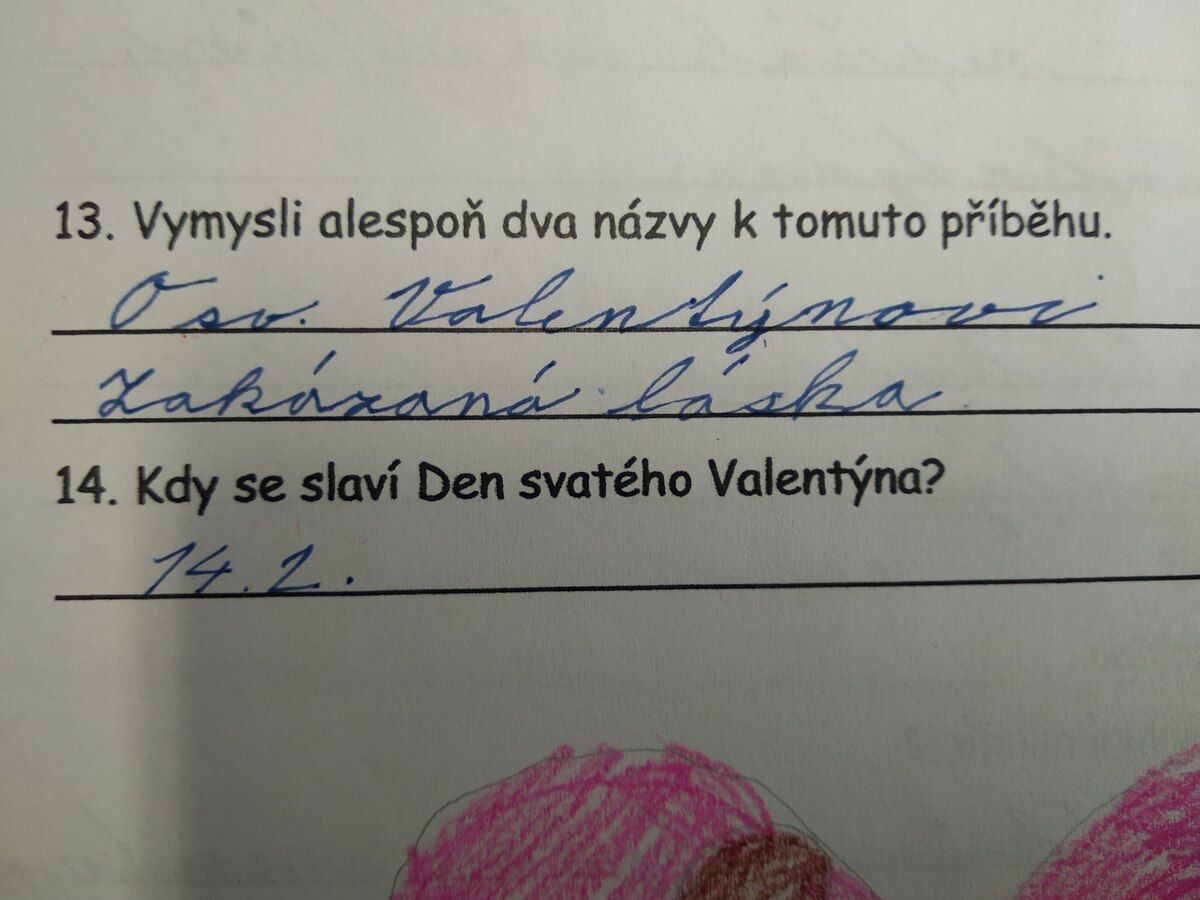 13. Vymysli alespoň dva názvy k tomuto příběhu.
O sv. Valentýnovi
Zakázaná láska
14. Kdy se slaví Den svatého Valentýna?
14.2.